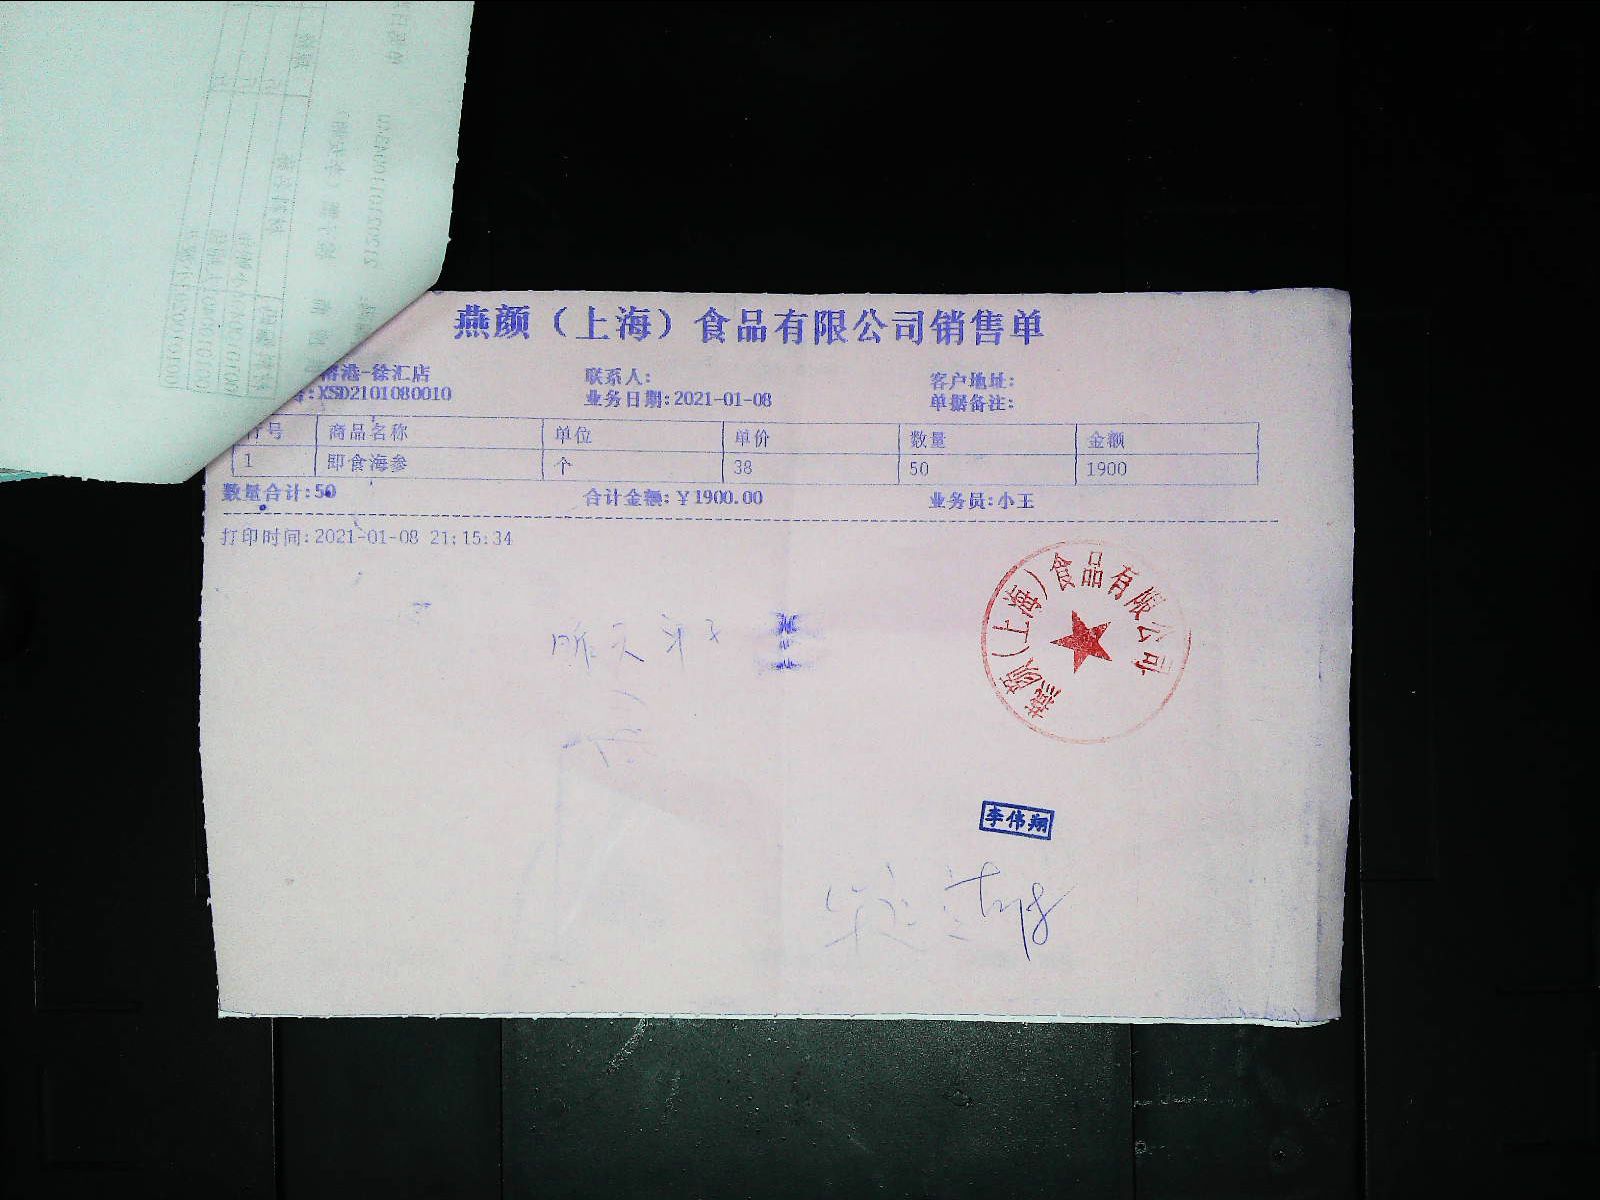 燕颜（上海）食品有限公司销售单
港-徐汇店 联系人: 客户地址:
:XSD2101080010 业务日期:2021-01-08 单据备注:
行号 商品名称 单位 单价 数量 金额
1 即食海参 个 38 50 1900
数量合计:50 合计金额:￥1900.00 业务员:小王
打印时间:2021-01-08 21:15:34
燕颜（上海）食品有限公司
昨天
李伟翔